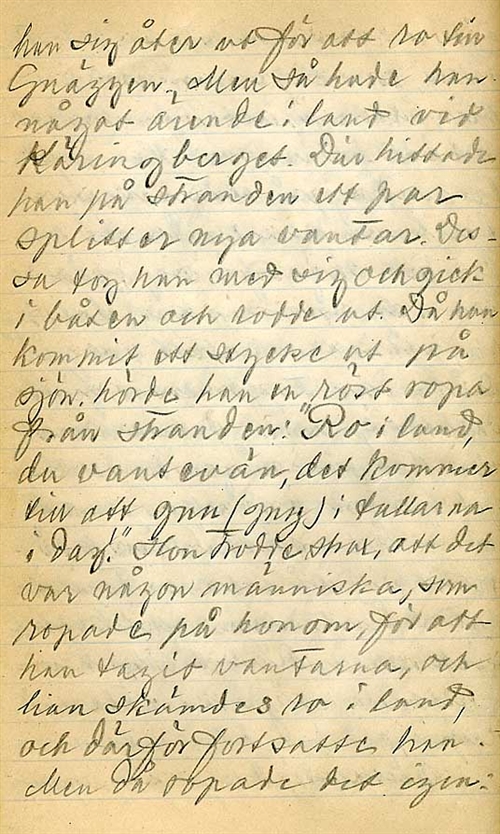 han sig åter ut för att ro till
Gnäggen. Men så hade han
något ärende i land vid
Käringberget. Där hittade
han på stranden ett par
splitter nya vantar. Des-
sa tog han med sig och gick
i båten och rodde ut. Då han
kommit ett stycke ut på
sjön, hörde han en röst ropa
från stranden: "Ro i land,
du vantevän, det kommer
till att gnu (gny) i tullarna
i dag!" Hon trodde strax, att det
var någon människa, som
ropade på honom, för att
han tagit vantarna, och
han skämdes ro i land,
och därför fortsatte han.
Men då ropade det igen: